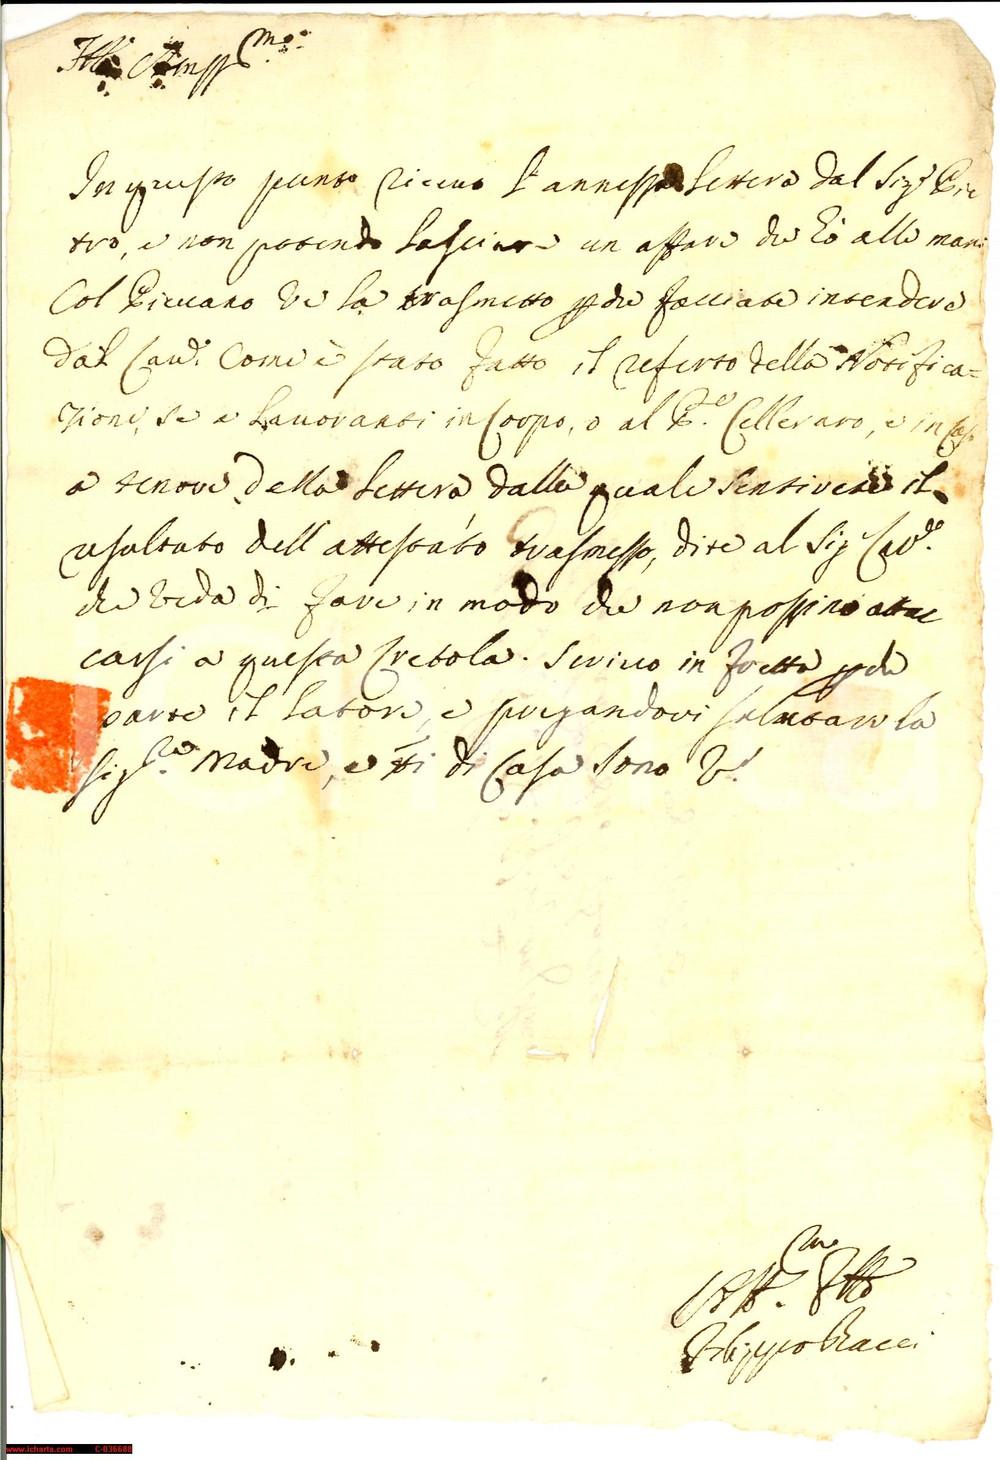 In questo punto ricevo l'annessa lettera dal Sig.r Pie
tro, e non potendo lasciare un affare che hò alle mani
Col Piccano ve la trasmetto p che facciate intendere
dal Cav.r Come è stato fatto il referto della Notifica=
zione, se a Lavoranti in Corpo, o al P.e Celleraro, e in Caso
a tenore della lettera dalla quale sentirete il
risultato dell attestato trasmesso, dite al Sig.r Cav.re
che veda di fare in modo che non possino attac
carsi a questa Cretola. Scrivo in fretta p che
parte il latore, e pregandovi salutare la
Sig.ra Madre, e tti di Casa sono V.
Aff.mo
Filippo Bacci
www.icharta.com C-036688